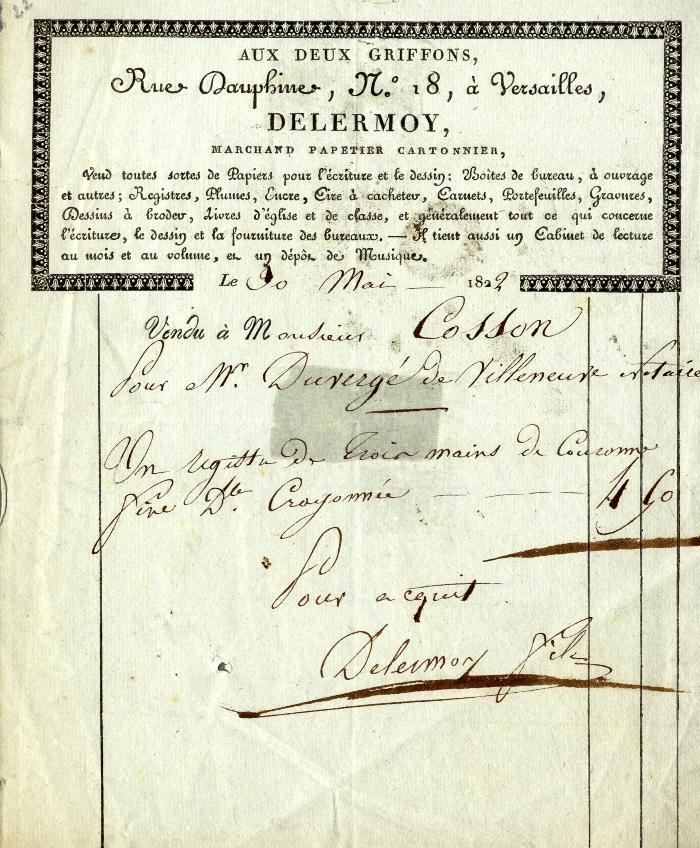 AUX DEUX GRIFFONS,
Rue Dauphine, N.º 18, à Versailles,
DELERMOY,
MARCHAND PAPETIER CARTONNIER,
Vend toutes sortes de Papiers pour l'écriture et le dessin; Boites de bureau, à ouvrage
et autres; Registres, Plumes, Encre, Cire à cacheter, Carnets, Portefeuilles, Gravures,
Dessins à broder, Livres d'église et de classe, et généralement tout ce qui concerne
l'écriture, le dessin et la fourniture des bureaux. — Il tient aussi un Cabinet de lecture
au mois et au volume, et un dépôt de Musique.
Le 30 Mai — 1822
Vendu à Monsieur Cosson
Pour Mr. Duvergé de Villeneuve Notaire
Un registre de trois mains de Couronne
fine Dle. Crayonnée — — — — 4 50
Pour acquit
Delermoy fils